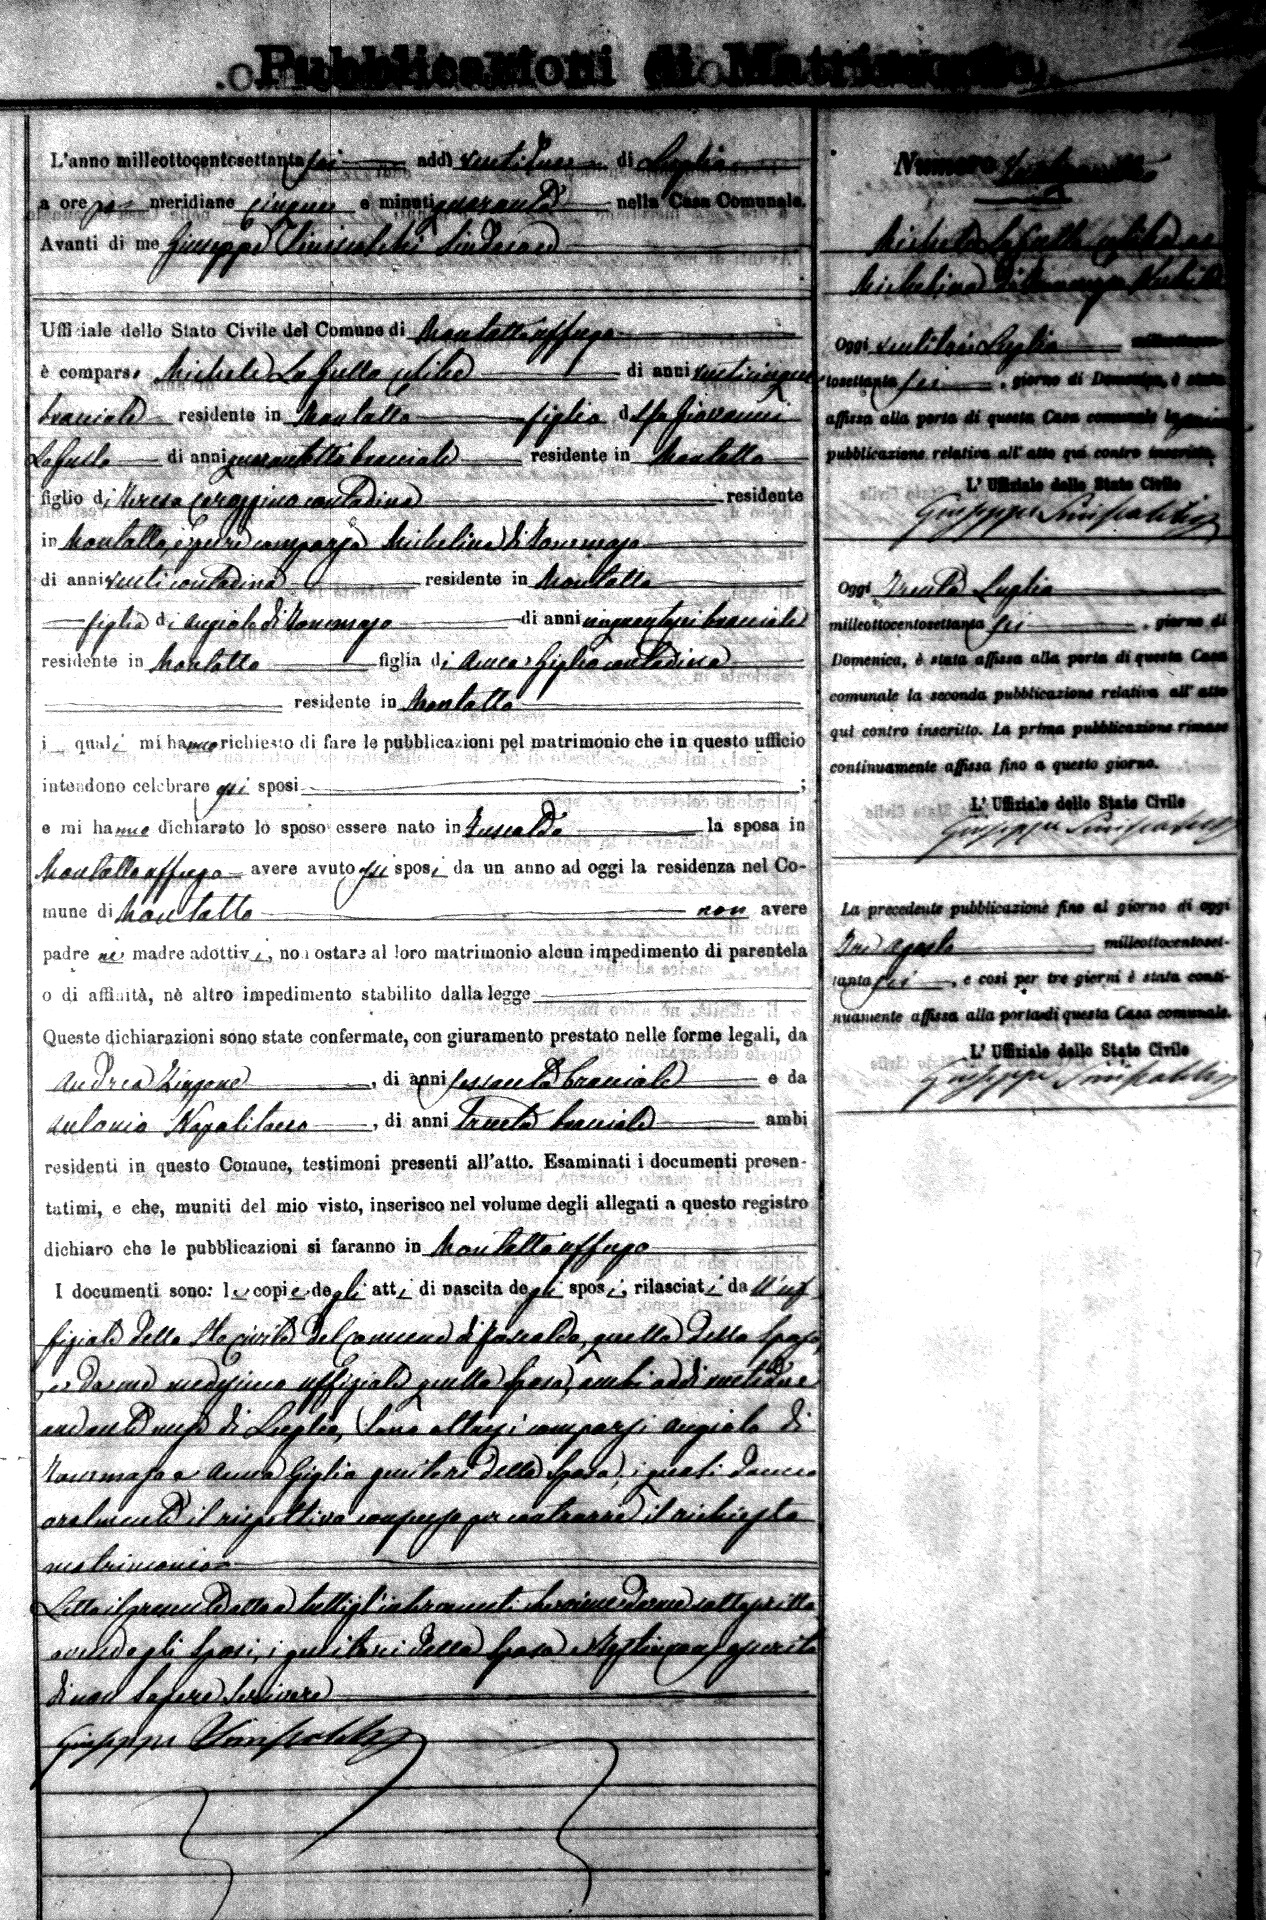 Pubblicazioni di Matrimonio.
L'anno milleottocentosettanta sei addì ventidue di Luglio
a ore po- meridiane cinque e minuti quaranta nella Casa Comunale.
Avanti di me Giuseppe Sindaco
Ufficiale dello Stato Civile del Comune di Montaltouffugo
è comparso Michele La Gullo celibe di anni venticinque
bracciale residente in Montalto figlio del fu Giovanni
La Gullo di anni quarantotto bracciale residente in Montalto
figlio di Teresa contadina residente
in Montalto, è pure comparsa Michelina di Tommaso
di anni venti contadina residente in Montalto
figlia di Angiolo di Tommaso di anni cinquantasei bracciale
residente in Montalto figlia di Anna Giglio contadina
residente in Montalto
i quali mi hanno richiesto di fare le pubblicazioni pel matrimonio che in questo ufficio
intendono celebrare gli sposi ;
e mi hanno dichiarato lo sposo essere nato in Fuscaldo la sposa in
Montaltouffugo avere avuto gli sposi da un anno ad oggi la residenza nel Co-
mune di Montalto non avere
padre nè madre adottivi, non ostare al loro matrimonio alcun impedimento di parentela
o di affinità, nè altro impedimento stabilito dalla legge
Queste dichiarazioni sono state confermate, con giuramento prestato nelle forme legali, da
Andrea Zingone, di anni sessanta bracciale e da
Antonio Napolitano, di anni trenta bracciale ambi
residenti in questo Comune, testimoni presenti all'atto. Esaminati i documenti presen-
tatimi, e che, muniti del mio visto, inserisco nel volume degli allegati a questo registro
dichiaro che le pubblicazioni si faranno in Montaltouffugo
I documenti sono: le copie degli atti di nascita degli sposi, rilasciati da ll'uf
fiziale dello Sto civile del Comune di Fuscaldo, quella dello Sposo,
e da me medesimo uffiziale quella Sposa, ambi addì ventidue
andante mese di Luglio, Sono altresì comparsi Angiolo di
Tommaso e Anna Giglio genitori della Sposa, i quali danno
oralmente il rispettivo consenso per contrarre il richiesto
matrimonio
Letto il presente atto a tutti gl'intervenuti viene da me sottoscritto
avendo gli Sposi, i genitori della Sposa e testimoni asserito
di non sapere scrivere
Giuseppe
Numero
Michele La Gullo celibe e
Michelina di Tommaso Nubile
Oggi ventitrè Luglio milleottocen-
tosettanta sei, giorno di Domenica, è stata
affissa alla porta di questa Casa comunale la prima
pubblicazione relativa all'atto qui contro inscritto.
L'Uffiziale dello Stato Civile
Giuseppe
Oggi Trenta Luglio
milleottocentosettanta sei, giorno di
Domenica, è stata affissa alla porta di questa Casa
comunale la seconda pubblicazione relativa all'atto
qui contro inscritto. La prima pubblicazione rimase
continuamente affissa fino a questo giorno.
L'Uffiziale dello Stato Civile
Giuseppe
La precedente pubblicazione fino al giorno di oggi
Tre Agosto milleottocentoset-
tanta sei, e così per tre giorni è stata conti-
nuamente affissa alla porta di questa Casa comunale.
L'Uffiziale dello Stato Civile
Giuseppe